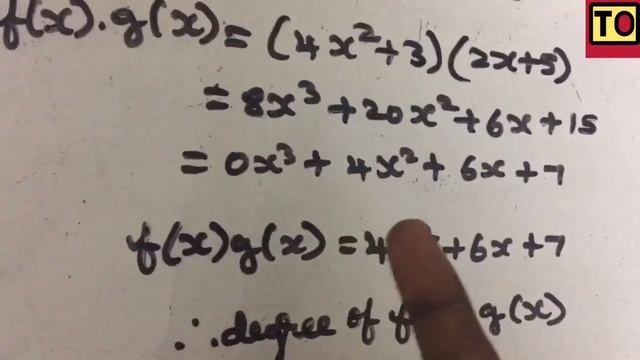 TO
f(x).g(x) = (4x²+3)(2x+5)
= 8x³ + 20x² + 6x + 15
= 0x³ + 4x² + 6x + 7
f(x)g(x) = 4 + 6x + 7
∴ degree of f g(x)